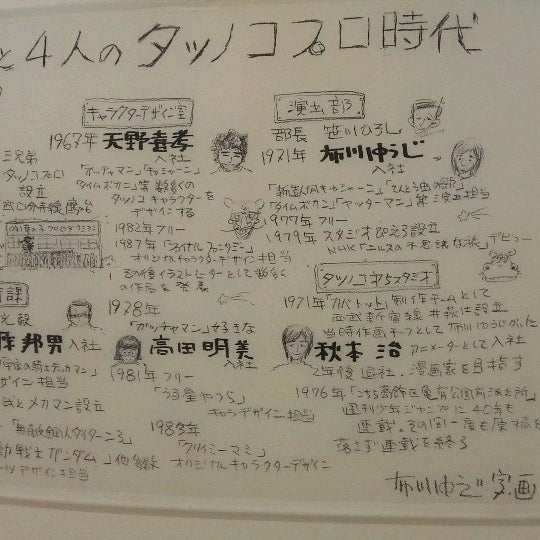 と4人のタツノコプロ時代
キャラクターデザイン室
1967年 天野喜孝
入社
「ガッチャマン」「キャシャーン」
「タイムボカン」等 数多くの
タツノコキャラクターを
デザインする
1982年 フリー
1987年「ファイナルファンタジー」
オリジナルキャラクターデザイン担当
その後イラストレーターとして数多く
の作品を発表
1978年
「ガッチャマン」好きな
高田明美 入社
1981年 フリー
「うる星やつら」
キャラデザイン担当
「クリィミーマミ」
オリジナルキャラクターデザイン
演出部
部長 笹川ひろし
1971年 布川ゆうじ
入社
「新造人間キャシャーン」「てんとう虫の歌」
「タイムボカン」「ヤッターマン」等 演出担当
1977年 フリー
1979年 スタジオぴえろ設立
NHK「ニルスの不思議な旅」デビュー
タツノコ第5スタジオ
1971年「カバトット」制作チームとして
西武新宿線 井荻に設立
当時作画チーフとして布川ゆうじがいた
秋本治 アニメーターとして入社
2年後退社、漫画家を目指す
1976年「こちら葛飾区亀有公園前派出所」
週刊少年ジャンプに40年も
連載。その間一度も原稿を
落さず連載を終る
三兄弟
タツノコプロ
設立
邦男 入社
「宇宙の騎士テッカマン」
デザイン担当
氏とメカマン設立
「無敵鋼人ダイターン3」
動戦士ガンダム」他多数
デザイン担当
布川ゆうじ 字、画